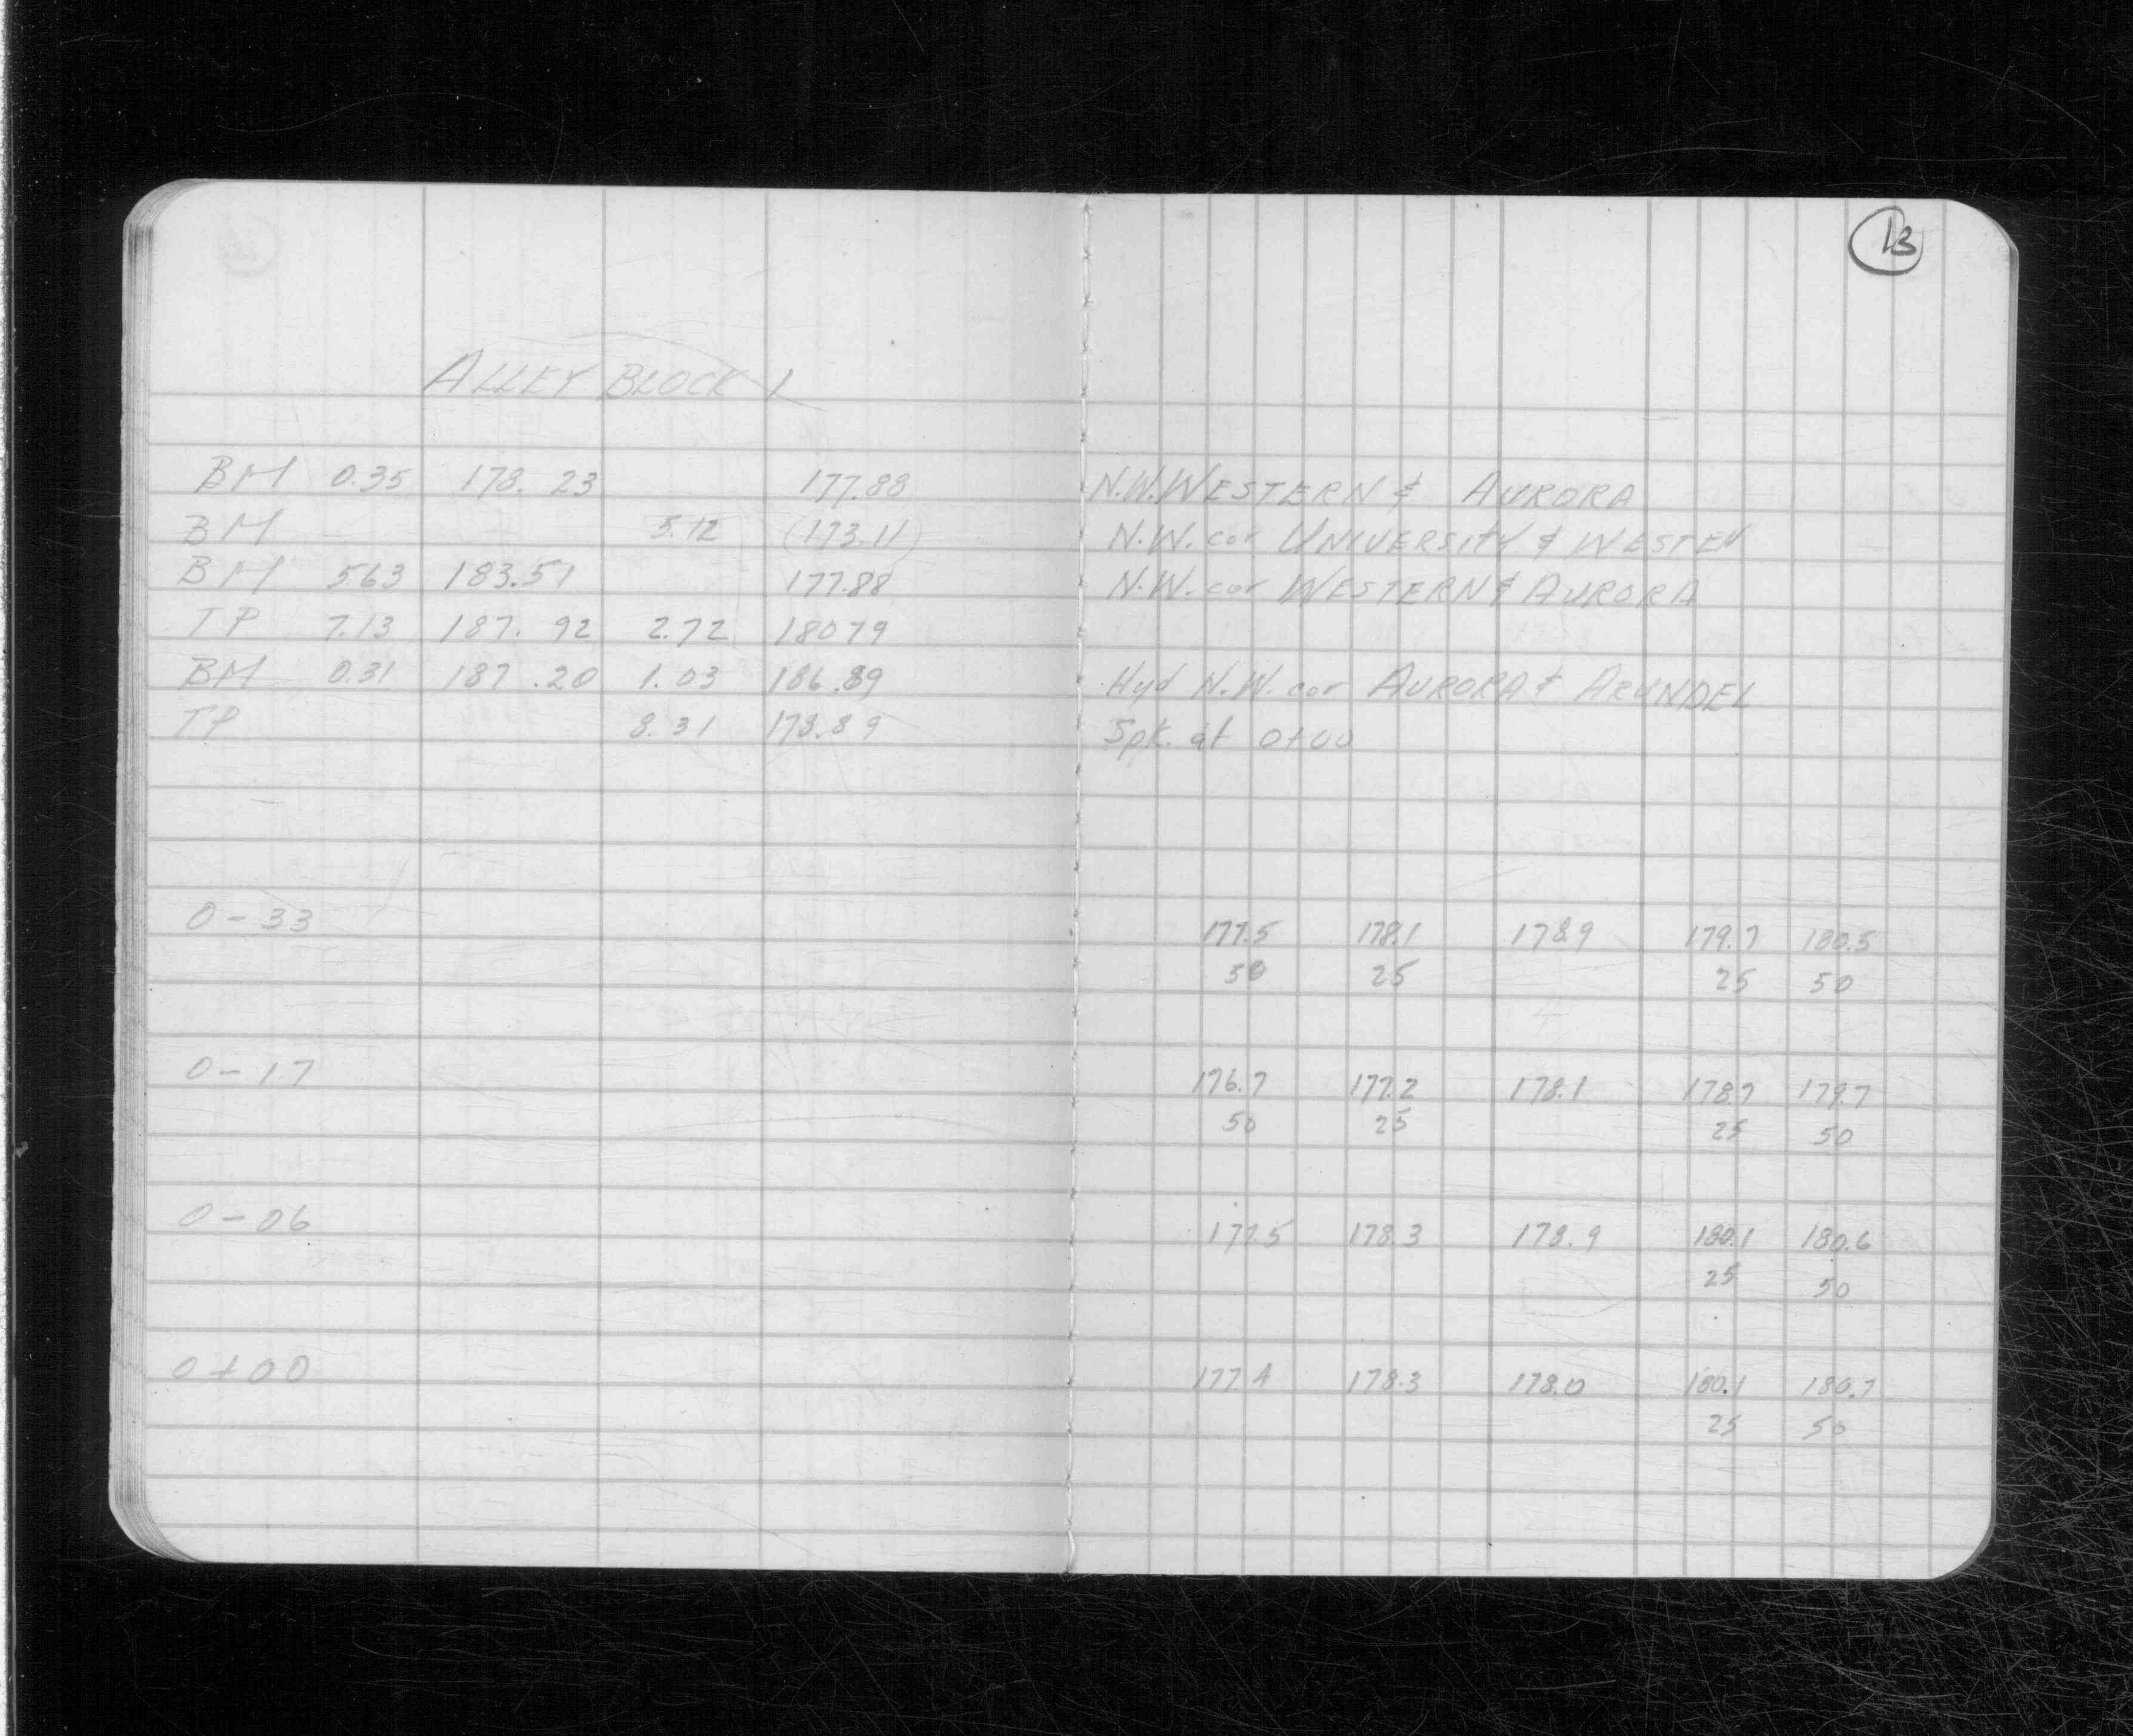 13
ALLEY BLOCK 1
BM 0.35 178.23 177.88 N.W. WESTERN & AURORA
BM 5.12 (173.11) N.W. cor UNIVERSITY & WESTEN
BM 563 183.51 177.88 N.W. cor WESTERN & AURORA
TP 7.13 187.92 2.72 18079
BM 0.31 187.20 1.03 186.89 Hyd N.W. cor AURORA & ARUNDEL
TP 8.31 178.89 Spk. at 0+00
0-33 177.5 178.1 178.9 179.7 180.5
50 25 25 50
0-17 176.7 177.2 178.1 178.7 179.7
50 25 25 50
0-06 177.5 178.3 178.9 180.1 180.6
25 50
0+00 177.4 178.3 178.0 180.1 180.7
25 50